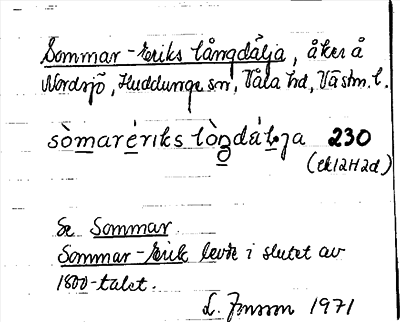 Sommar-Eriks långdälja, åker å
Nordsjö, Huddunge sn, Våla hd, Västm. l.
sòmarériks lòŋdäḷja 230
(Ek12H2d)
Se Sommar
Sommar-Erik levde i slutet av
1800-talet.
L. Jonsson 1971